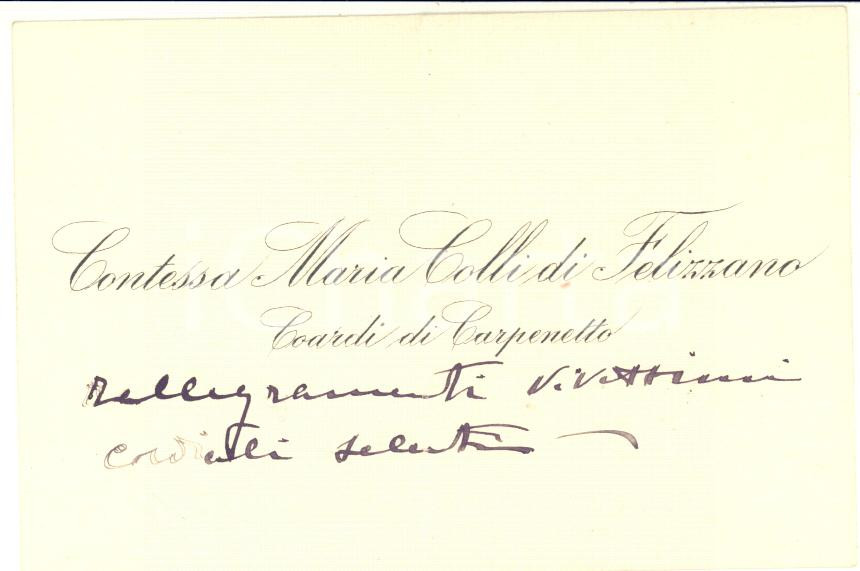 Contessa Maria Colli di Felizzano
Coardi di Carpenetto
rallegramenti vivissimi
cordiali saluti